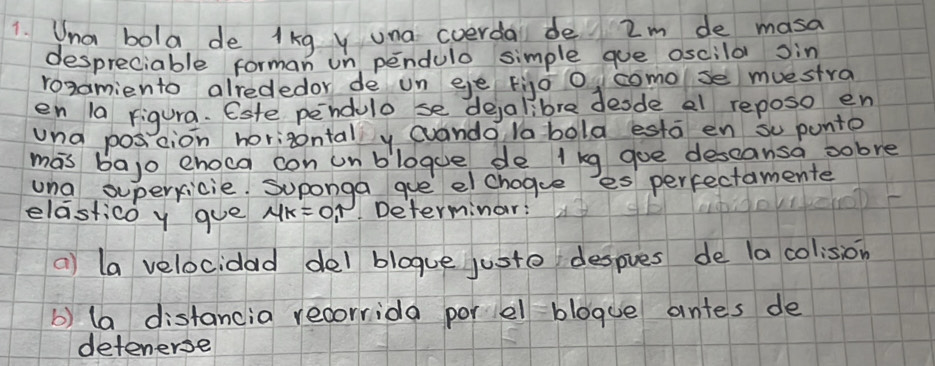 1. Una bola de 1kg y una cuerda de 2m de masa
despreciable forman un péndulo simple que oscila sin
rozamiento alrededor de un eje fijo O, como se muestra
en la figura. Este péndulo se deja libre desde el reposo en
una posición horizontal y cuando la bola está en su punto
más bajo choca con un bloque de 1 kg que descansa sobre
una superficie. Suponga que el choque es perfectamente
elástico y que μk = 0,1. Determinar:
a) la velocidad del bloque justo despues de la colisión
b) la distancia recorrida por el bloque antes de
detenerse